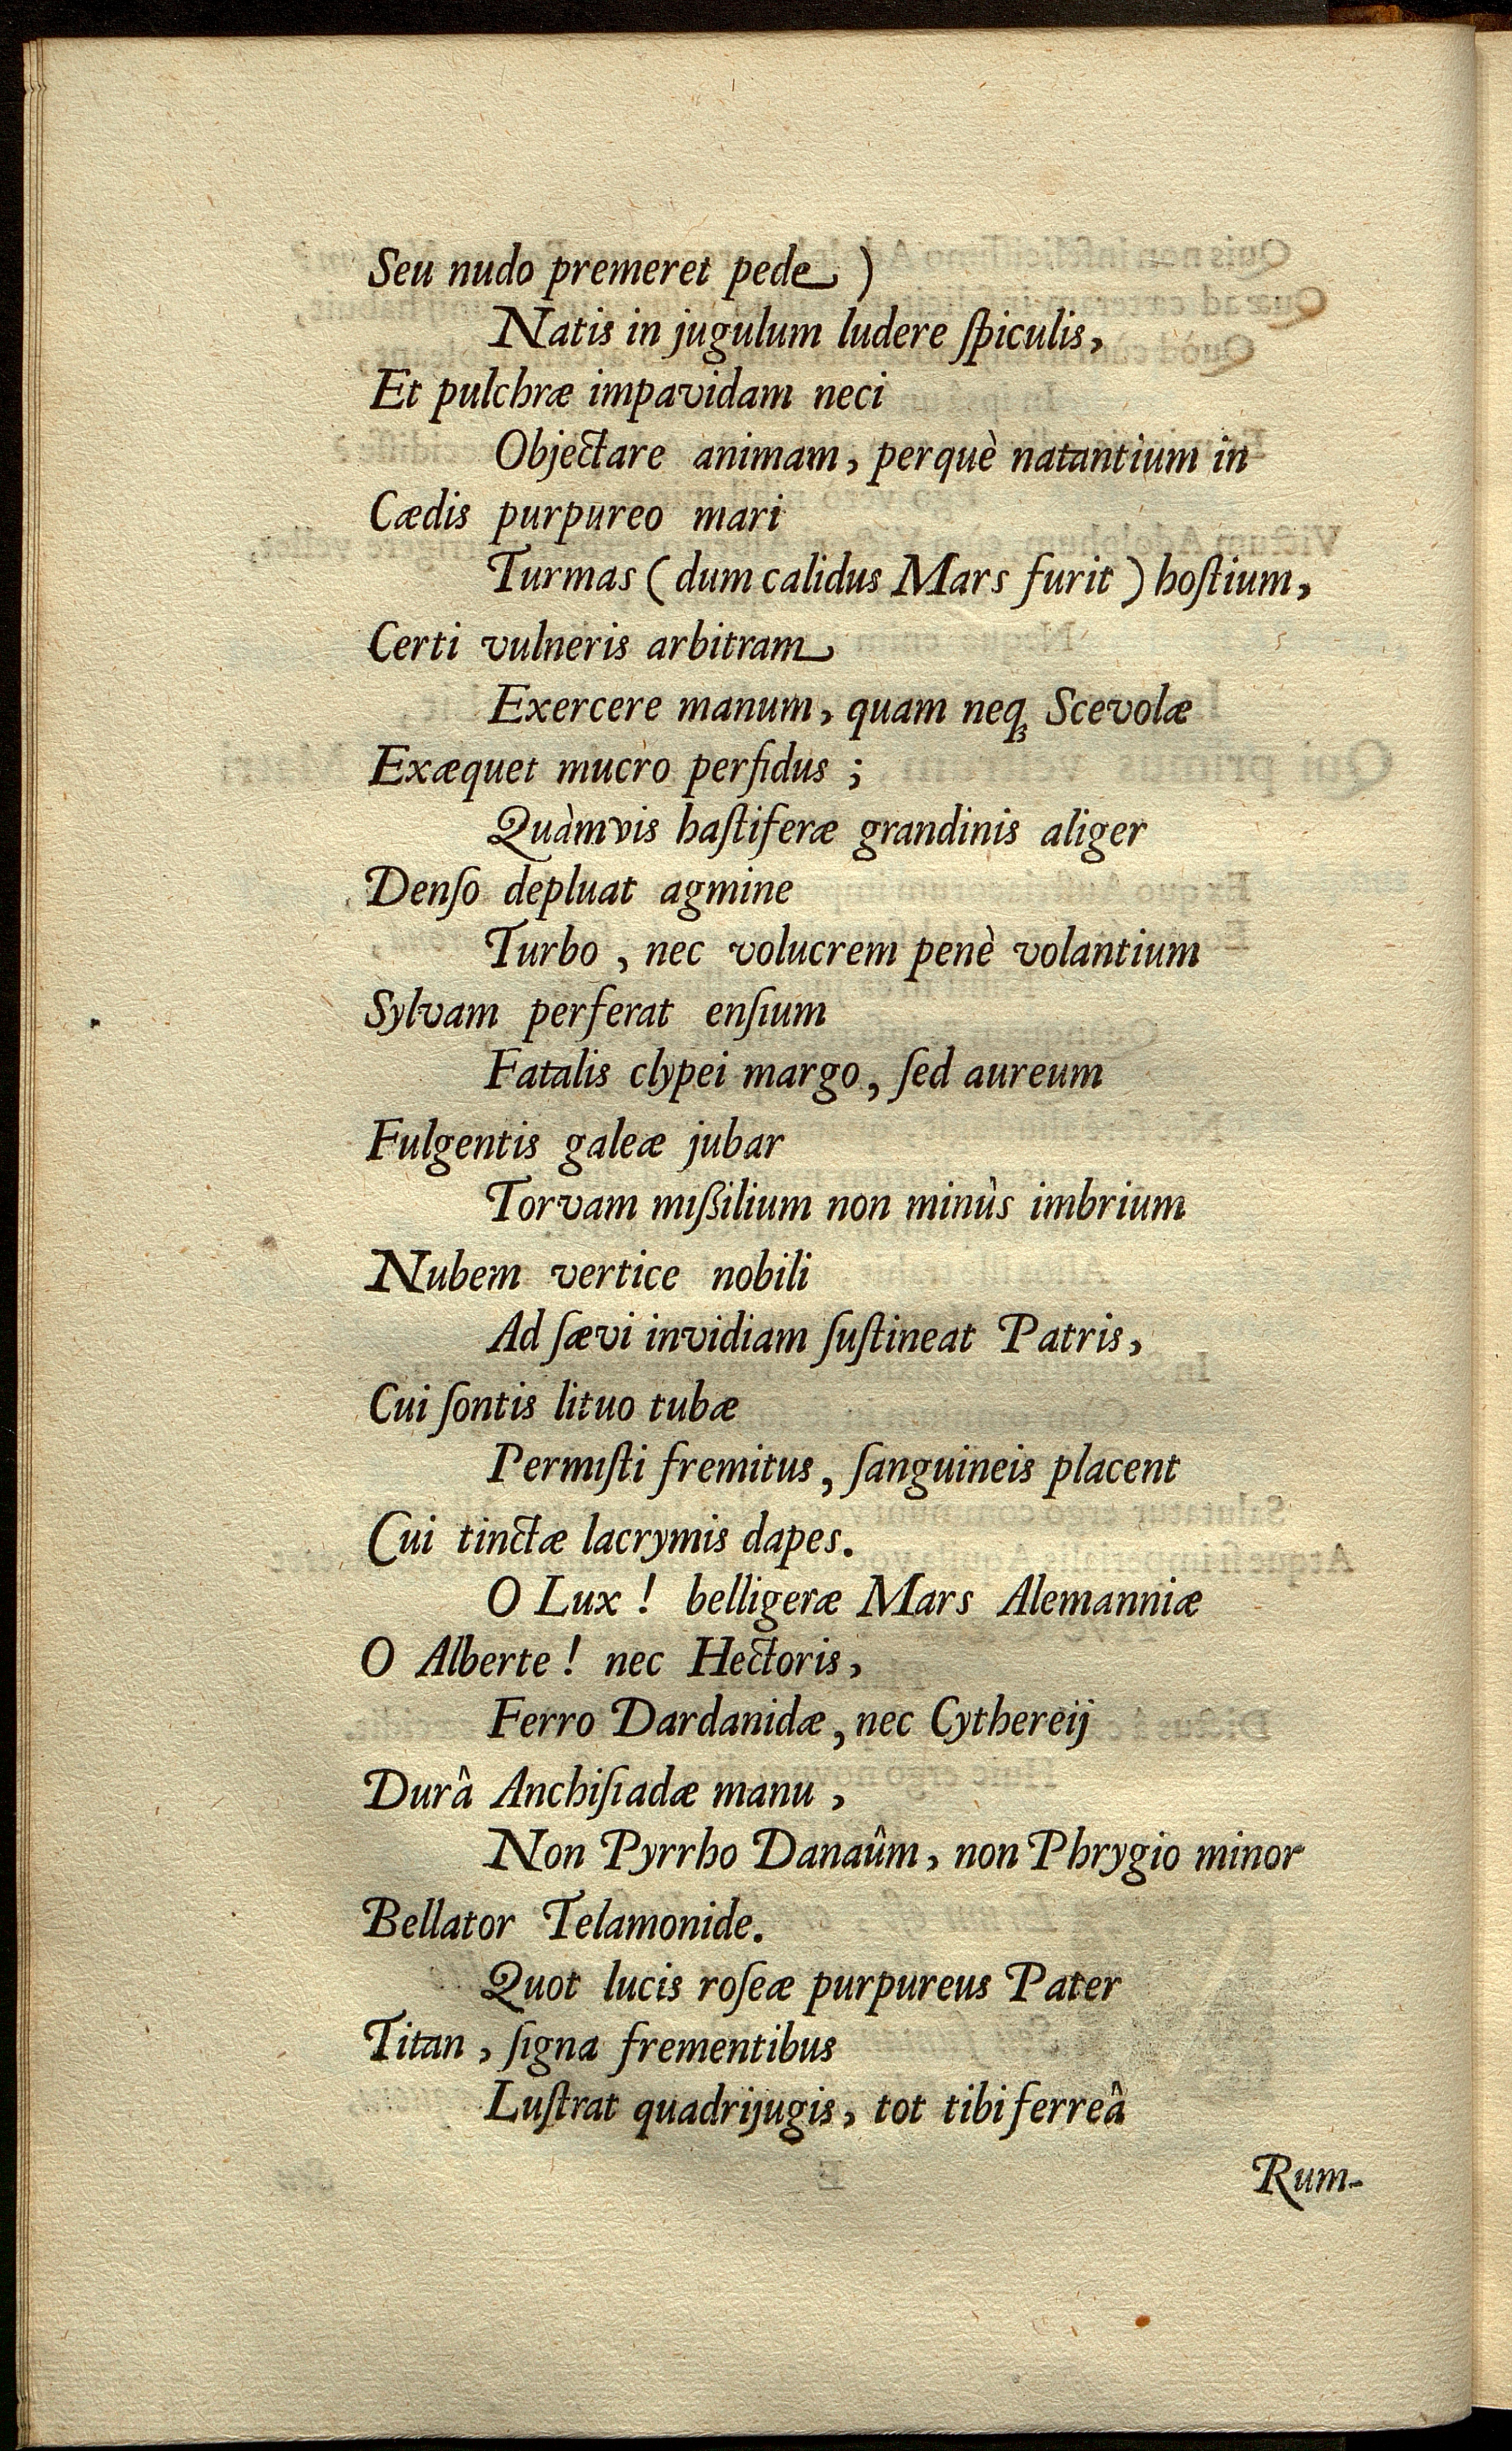 Seu nudo premeret pede )
Natis in jugulum ludere ſpiculis,
Et pulchræ impavidam neci
Objectare animam, perquè natantium in
Cædis purpureo mari
Turmas ( dum calidus Mars furit ) hoſtium,
Certi vulneris arbitram
Exercere manum, quam neqꝫ Scevolæ
Exæquet mucro perfidus ;
Quàmvis haſtiferæ grandinis aliger
Denſo depluat agmine
Turbo , nec volucrem penè volantium
Sylvam perferat enſium
Fatalis clypei margo, ſed aureum
Fulgentis galeæ jubar
Torvam mißilium non minùs imbrium
Nubem vertice nobili
Ad ſævi invidiam ſuſtineat Patris,
Cui ſontis lituo tubæ
Permiſti fremitus, ſanguineis placent
Cui tinctæ lacrymis dapes.
O Lux ! belligeræ Mars Alemanniæ
O Alberte ! nec Hectoris,
Ferro Dardanidæ, nec Cythereij
Durâ Anchiſiadæ manu ,
Non Pyrrho Danaûm, non Phrygio minor
Bellator Telamonide.
Quot lucis roſeæ purpureus Pater
Titan , ſigna frementibus
Luſtrat quadrijugis, tot tibi ferreâ
Rum-